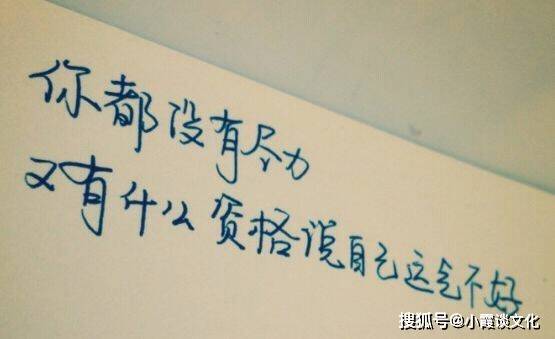 你都没有尽力
又有什么资格说自己运气不好
搜狐号@小霞谈文化